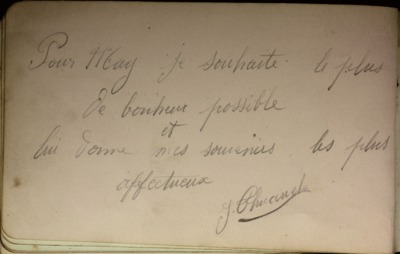 Pour May je souhaite le plus
de bonheur possible
et
lui donne mes souvenirs les plus
affectueux
J.